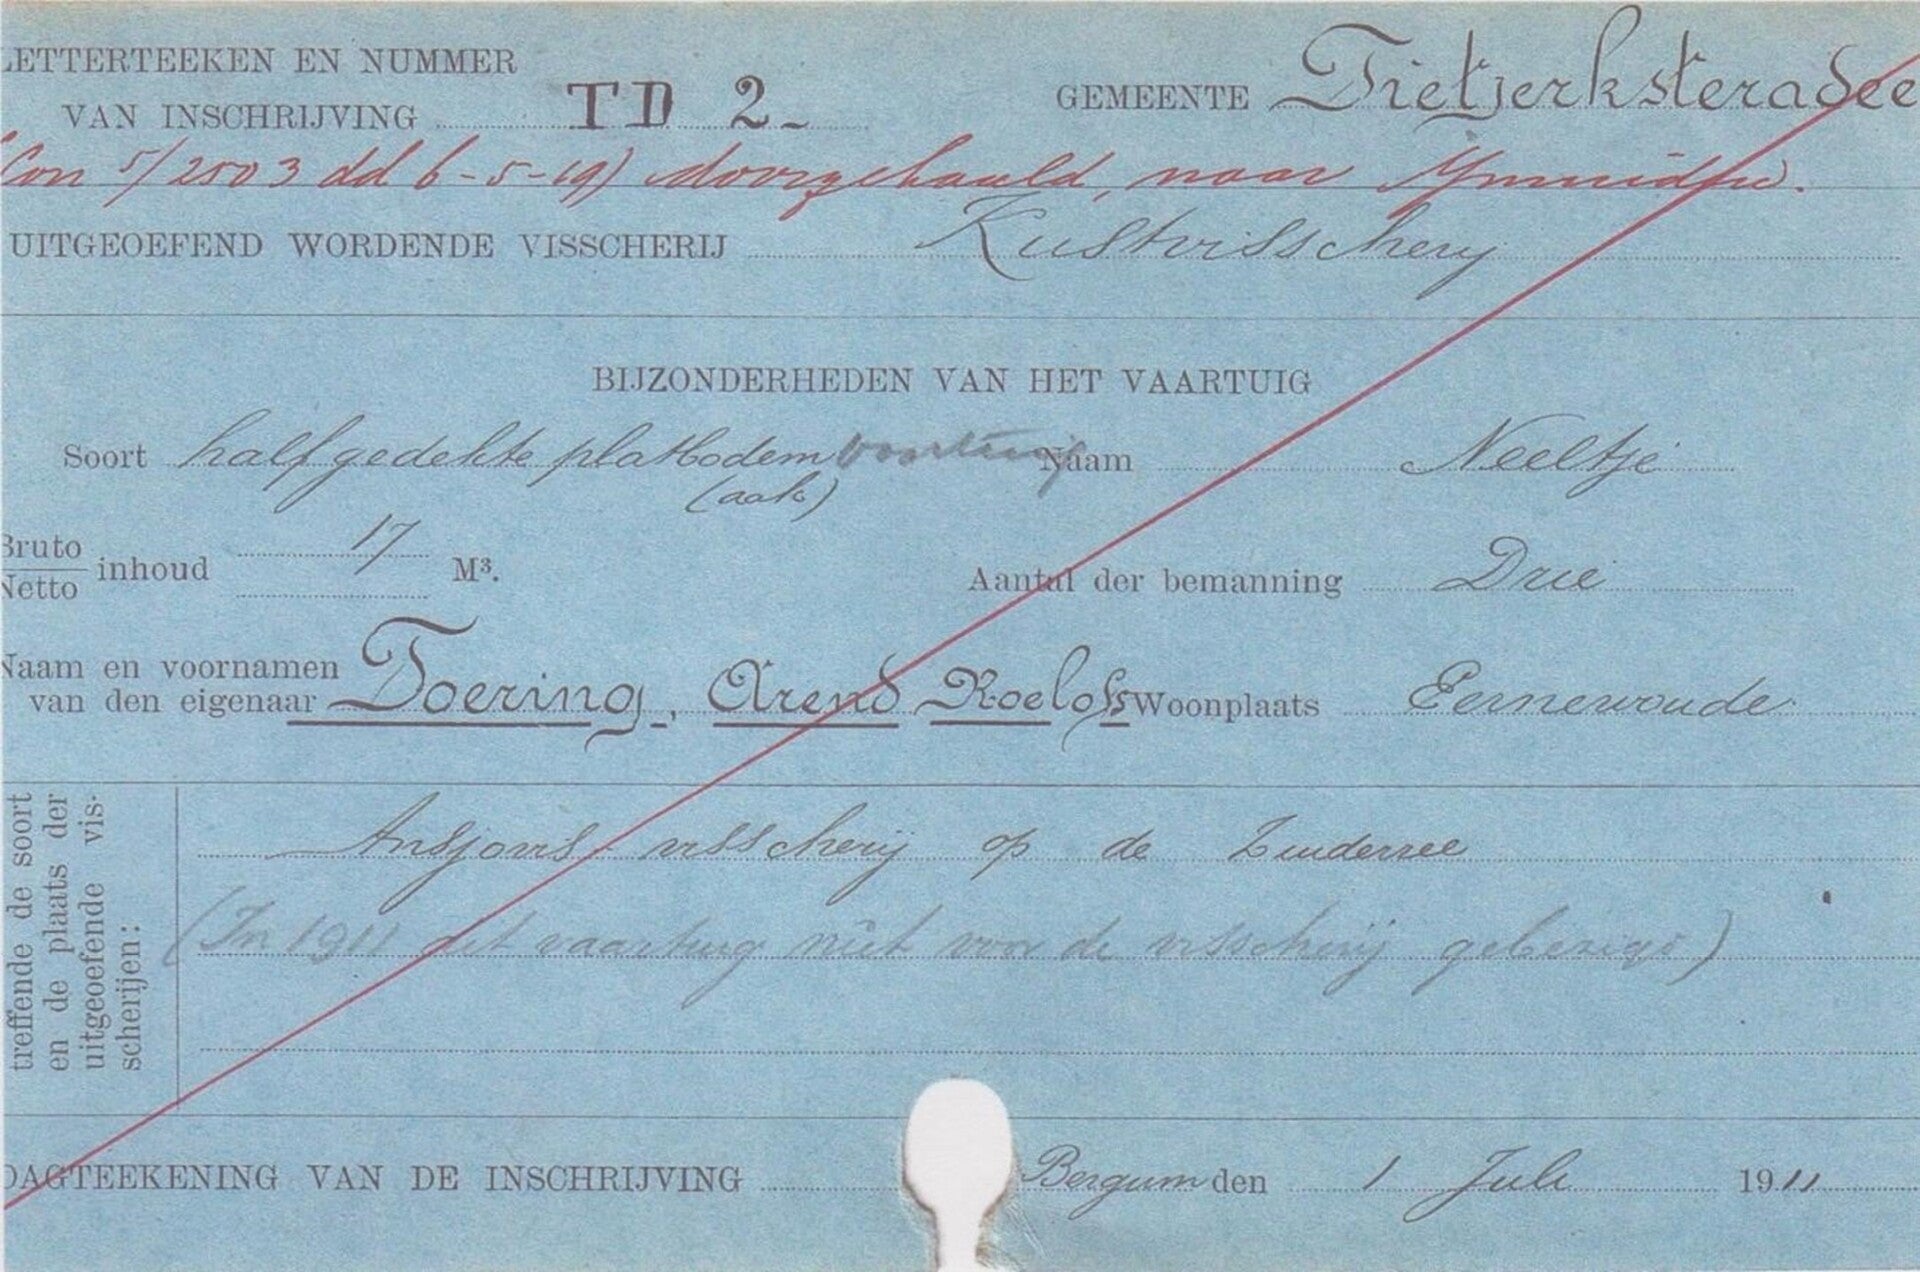 LETTERTEEKEN EN NUMMER
VAN INSCHRIJVING TD 2.
GEMEENTE Tietjerksteradee
Con 5/2503 dd 6-5-19) doorgehaald, naar Ymuiden.
UITGEOEFEND WORDENDE VISSCHERIJ Kustvisscherij
BIJZONDERHEDEN VAN HET VAARTUIG
Soort half gedekte platbodem vaartuig Naam Neeltje
(aak)
Bruto
Netto inhoud 17 M³. Aantal der bemanning Drie
Naam en voornamen
van den eigenaar Toering, Arend Roelofs Woonplaats Eernewoude
treffende de soort
en de plaats der
uitgeoefende vis-
scherijen:
Ansjovis visscherij op de Zuiderzee
(In 1911 dit vaartuig niet voor de visscherij gebezigd)
DAGTEEKENING VAN DE INSCHRIJVING Bergum den 1 Juli 1911